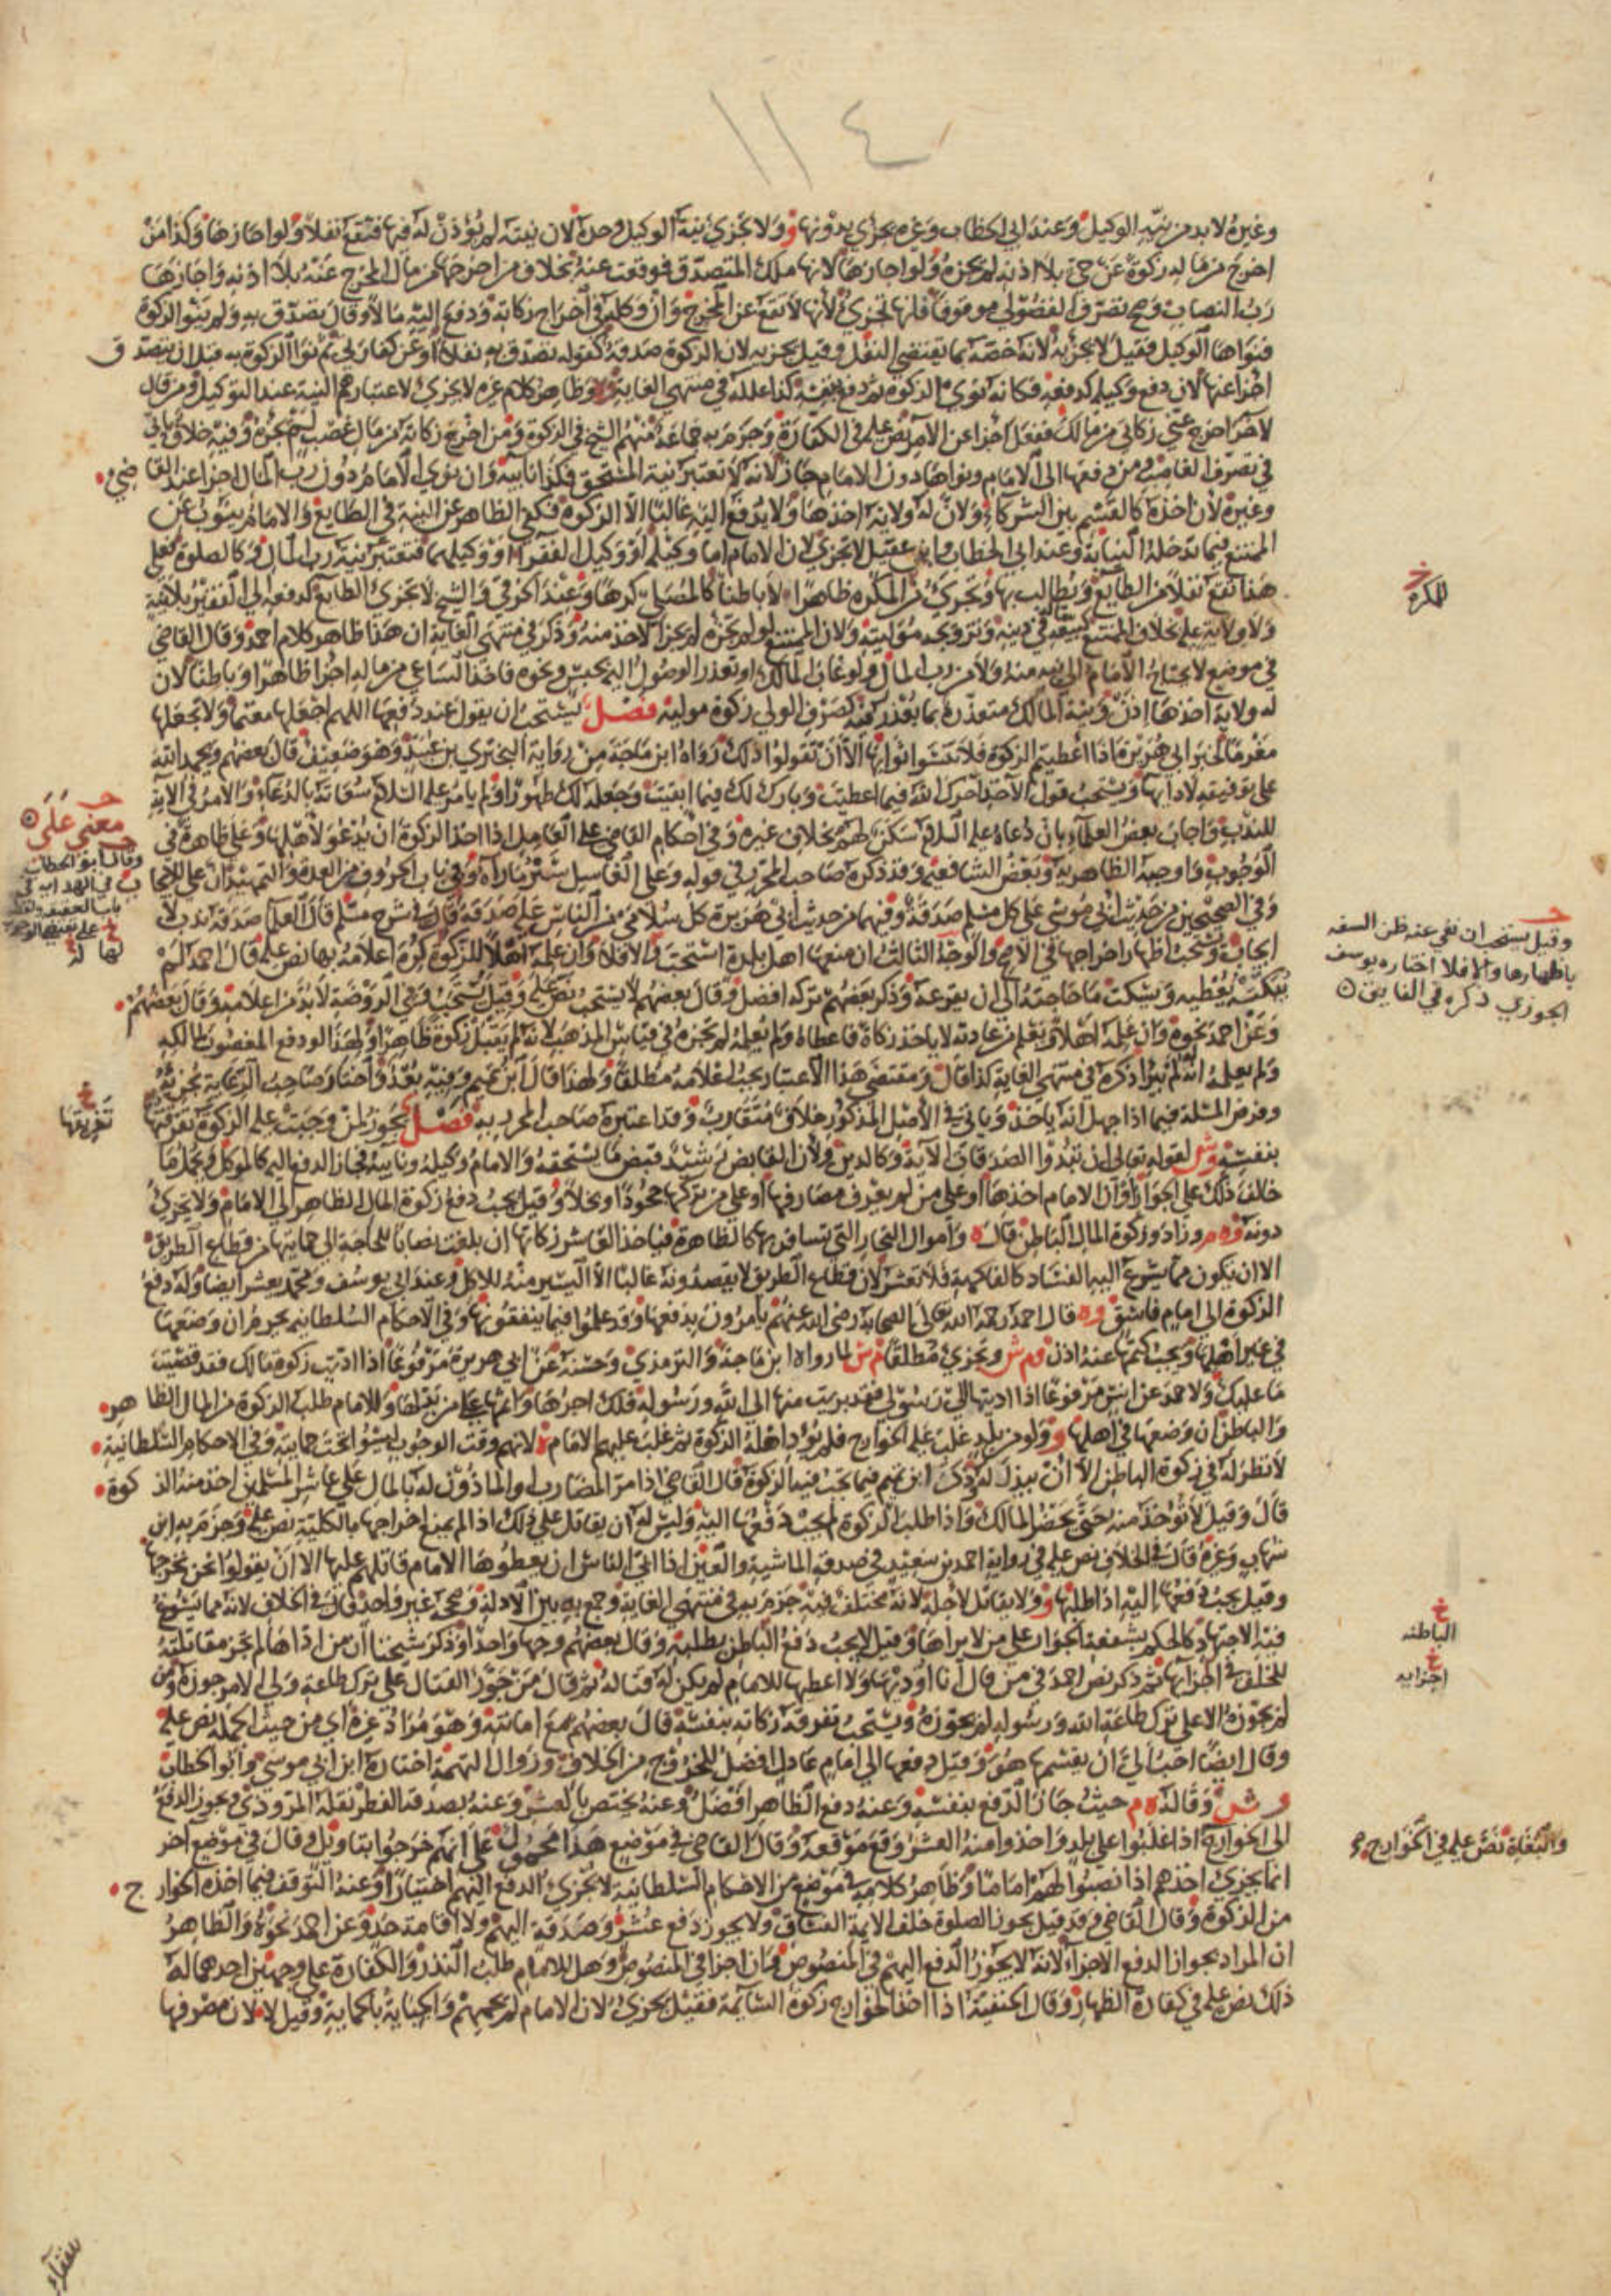 ١١٤
وغيره لا بد من نية الوكيل وعند ابي الخطاب وغيره يجزي بدونها و ولا تجزي نية الوكيل وحده لان نيته لم يؤذن له فيها فتقع نفلا ولو اجازها وكذا من
اخرج من ماله زكوة عن حي بلا اذنه لم يجزه ولو اجازها لانها ملك المتصدق فوقعت عنه بخلاف من اخرجها من مال المخرج عنه بلا اذنه واجازها
رب النصاب وصح تصرف الفضولي موقوفا فانها تجزي لانها لا تقع عن المخرج وان وكله في اخراج زكاته ودفع اليه مالا وقال تصدق به ولم ينو الزكوة
فنواها الوكيل فقيل لا يجزئه لانه خصه بما يقتضي النفل وقيل يجزيه لان الزكوة صدقة كقوله تصدق به نفلا او عن كفارتي ثم نوا الزكوة به قبل ان يتصدق
اجزا عنها لان دفع وكيله كدفعه فكانه نوى الزكوة ثم دفع بنفسه كذا علله في منتهى الغاية وظاهر كلام غيره لا يجزي لاعتبارهم النية عند التوكيل ومن قال
لاخر اخرج عني زكاتي من مالك ففعل اجزا عن الآمر نص عليه في الكفارة وجزم به جماعة منهم الشيخ في الزكوة ومن اخرج زكاته من مال غصب لم يجزه وفيه خلاف ياتي
في تصرف الغاصب ومن دفعها الى الامام ونواها دون الامام جاز لانه لا تعتبر نية المستحق فكذا نايبه وان نوى الامام دون رب المال اجزا عند القاضي
وغيره لان اخذه كالقسم بين الشركاء ولان له ولاية اخذها ولا يدفع اليه غالبا الا الزكوة فكفى الظاهر عن النية في الطايع والامام ينوب عن
الممتنع فيما تدخله النيابة وعند ابي الخطاب وابن عقيل لا تجزي لان الامام اما وكيله او وكيل الفقراء او وكيلهما فتعتبر نية رب المال وكالصلوة فعلى
هذا تقع نفلا من الطايع ويطالب بها وتجزي من المكره ظاهرا لا باطنا كالمصلي كرها وعند الخرقي والشيخ لا تجزي الطايع كدفعه الى الفقير بلا نية
ولا ولاية عليه بخلاف الممتنع
في موضع لا يحتاج الامام الى نية منه ولا من رب المال ولو غاب المالك او تعذر الوصول اليه بحبس ونحوه فاخذ الساعي من ماله اجزا ظاهرا وباطنا لان
له ولاية اخذها اذن ونية المالك متعذرة بما يعذر فيه كصرف الولي زكوة موليه فصل يستحب ان يقول عند دفعها اللهم اجعلها مغنما ولا تجعلها
مغرما لخبر ابي هريرة اذا اعطيتم الزكوة فلا تنسوا ثوابها ان تقولوا ذلك رواه ابن ماجة من رواية البختري بن عبيد وهو ضعيف قال بعضهم ويحمد الله
على توفيقه لادايها ويستحب قول الاخذ آجرك الله فيما اعطيت وبارك لك فيما ابقيت وجعله لك طهورا ولم يامر عليه السلام سعاته بالدعاء والامر في الاية
للندب واجاب بعض العلماء بان دعاءه عليه السلام سكن لهم بخلاف غيره وفي احكام القاضي على العامل اذا اخذ الزكوة ان يدعو لاهلها وعلى ظاهرة في
الوجوب واوجبه الظاهرية وبعض الشافعية وقد ذكره صاحب المحرر في قوله وعلى الغاسل ستر ما رآه وفي باب الحروف من العدة والتمهيد ان على للايجاب
وفي الصحيحين من حديث ابي موسى على كل مسلم صدقة وفيهما من حديث ابي هريرة كل سلامى من الناس عليه صدقة وقال في شرح مسلم قال العلماء صدقة ندب لا
ايجاب ويستحب اظهار اخراجها في الاصح والوجه الثالث ان منعها اهل بلدة استحب والا فلا وان علمه اهلا للزكوة كره اعلامه بها نص عليه قال احمد لم
يبكته يعطيه ويسكت ما حاجته الى ان يقرعه وذكر بعضهم تركه افضل وقال بعضهم لا يستحب نص عليه وقيل يستحب وفي الروضة لا بد من اعلامه وقال بعضهم
وعن احمد نحوه وان علمه اهلا ويعلم من عادته لا ياخذ زكاة فاعطاه ولم يعلمه لم يجزه في قياس المذهب لانه لم يقبل زكوة ظاهرا ولهذا لو دفع المغصوب لمالكه
ولم يعلمه انه له لم يبرا ذكره في منتهى الغاية كذا قال ومقتضى هذا الاعتبار يجب اعلامه مطلقا ولهذا قال ابن تميم وفيه بعد واختار صاحب الرعاية يجزيه
وفرض المسئلة فيما اذا جهل انه ياخذ وياتي في الاصل المذكور خلاف متقارب وقد اعتبره صاحب المحرر به فصل يجوز لمن وجبت عليه الزكوة تفرقتها
بنفسه وش لقوله تعالى ان تبدوا الصدقات الآية وكالدين ولان القابض رشيد قبض ما يستحقه والامام وكيله ونايبه فجاز الدفع اليه كالموكل ويحمل ما
خالف ذلك على الجواز او ان الامام اخذها او على من لم يعرف مصارفها او على من تركها جحودا او بخلا وقيل يجب دفع زكوة المال الظاهر الى الامام ولا يجزي
دونه وه م وزاد وزكوة المال الباطن قال ه واموال التجار التي تسافر بها كالظاهرة فياخذ العاشر زكاتها ان بلغت نصابا للحاجة الى حمايتها من قطاع الطريق
الا ان يكون مما يسرع اليه الفساد كالفاكهة فلا تعشر لان قطاع الطريق لا يقصدونه غالبا الا اليسير منه للاكل وعند ابي يوسف ومحمد يعشر ايضا وله دفع
الزكوة الى امام فاسق وه قال احمد رحمه الله تعالى الصحابة رضي الله عنهم يامرون بدفعها وقد علموا فيما ينفقونها وفي الاحكام السلطانية يحرم ان وضعها
في غير اهلها ويجب كتمها عنه اذن وم ش وتجزي مطلقا م ش لما رواه ابن ماجة والترمذي وحسنه عن ابي هريرة مرفوعا اذا اديت زكوة مالك فقد قضيت
ما عليك ولاحمد عن انس مرفوعا اذا اديتها الى رسولي فقد بريت منها الى الله ورسوله فلك اجرها واثمها على من بدلها وللامام طلب الزكوة من المال الظاهر
والباطن ان وضعها في اهلها و ولو من بلد غلب عليه الخوارج فلم يؤد اهله الزكوة ثم غلب عليهم الامام ه لانهم وقت الوجوب ليسوا تحت حمايته وفي الاحكام السلطانية
لا نظر له في زكوة الباطن الا ان يبذل له وذكر ابن تميم فيما تجب فيه الزكوة قال القاضي اذا مر المضارب والماذون له بالمال على عاشر المسلمين اخذ منه الزكوة
قال وقيل لا تؤخذ منه حتى يحضر المالك واذا طلب الزكوة لم يجب دفعها اليه وليس له ان يقاتل على ذلك اذا لم يمنع اخراجها بالكلية نص عليه وجزم به ابن
شهاب وغيره قال في الخلاف نص عليه في رواية احمد بن سعيد في صدقة الماشية والعين اذا ابى الناس ان يعطوها الامام قاتلهم عليها الا ان يقولوا نحن نخرجها
وقيل يجب دفعها اليه اذا طلبها و ولا يقاتل لاجله لانه مختلف فيه جزم به في منتهى الغاية وجمع به بين الادلة وصححه غير واحد قال في الخلاف لانه مما يسوغ
فيه الاجتهاد كالحكم بشفعة الجوار على من لا يراها وقيل لا يجب دفع الباطن بطلبه وقال بعضهم وجها واحدا وذكر شيخنا ان من اداها لم تجز مقاتلته
للخلف في اجزائها ثم ذكر نص احمد في من قال انا اؤديها ولا اعطيها للامام لم يكن له قتاله ثم قال من جوز القتال على ترك طاعة ولي الامر جوزه ومن
لم يجوزه الا على ترك طاعة الله ورسوله لم يجوزه ويستحب تفرقة زكاته بنفسه قال بعضهم مع امانته وهو مراد غيره اي من حيث الجملة نص عليه
وقال ايضا احب الي ان يقسمها هو وقيل دفعها الى امام عادل افضل للخروج من الخلاف وزوال التهمة اختاره ابن ابي موسى وابو الخطاب
وش وقاله ه م حيث جاز الدفع بنفسه وعنه دفع الظاهر افضل وعنه يختص بالعشر وعنه بصدقة الفطر نقله المروذي ويجوز الدفع
الى الخوارج اذا غلبوا على بلد واخذوا منه العشر وقع موقعه وقال القاضي في موضع هذا محمول على انهم خرجوا بتاويل وقال في موضع اخر
انما يجزي اخذهم اذا نصبوا لهم اماما وظاهر كلامه في موضع من الاحكام السلطانية لا يجزي الدفع اليهم اختيارا وعنه التوقف فيما اخذه الخوارج
من الزكوة وقال القاضي وقد قيل يجوز الصلوة خلف الايمة الفساق ولا يجوز دفع عشر وصدقة اليهم ولا اقامة حد وعن احمد نحوه والظاهر
ان المراد بجواز الدفع الاجزاء لانه لا يجوز الدفع اليهم في المنصوص وان اجزا في المنصوص وهل للامام طلب النذر والكفارة على وجهين احدهما له
ذلك نص عليه في كفارة الظهار وقال الحنفية اذا اخذ الخوارج زكوة السائمة فقيل يجزي لان الامام لم يحمهم والجباية بالحماية وقيل لا لان مصرفها
للمكره
معنى على
وقال ابو الخطاب
في الهداية في
لها له
وقيل يستحب ان نفي عنه ظن السفه
باظهارها والا فلا اختاره يوسف
الجوزي ذكره في الفايق
تفريقها
الباطنه
اجزايه
والبغاة نص عليه في الخوارج